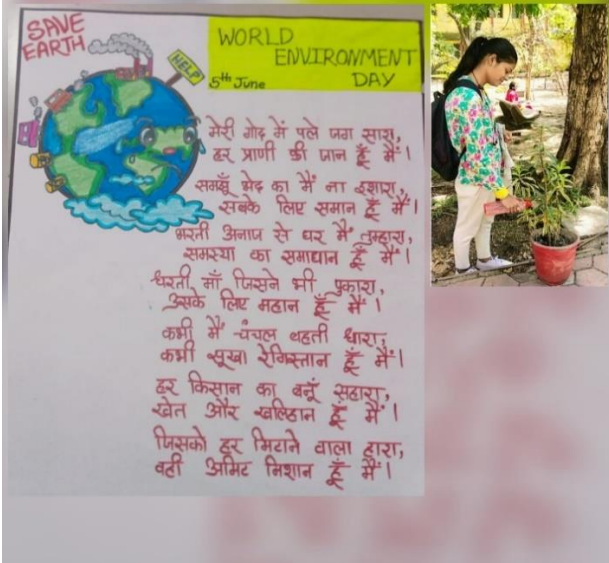 SAVE
EARTH
HELP
WORLD
ENVIRONMENT
5th June DAY
मेरी गोद में पले जग सारा,
हर प्राणी की जान हूँ मैं।
समझूँ भेद का मैं ना इशारा,
सबके लिए समान हूँ मैं।
भरती अनाज से घर मैं तुम्हारा,
समस्या का समाधान हूँ मैं।
धरती माँ जिसने भी पुकारा,
उसके लिए महान हूँ मैं।
कभी मैं चंचल बहती धारा,
कभी सूखा रेगिस्तान हूँ मैं।
हर किसान का बनूं सहारा,
खेत और खलिहान हूँ मैं।
जिसको हर मिटाने वाला हारा,
वही अमिट निशान हूँ मैं।